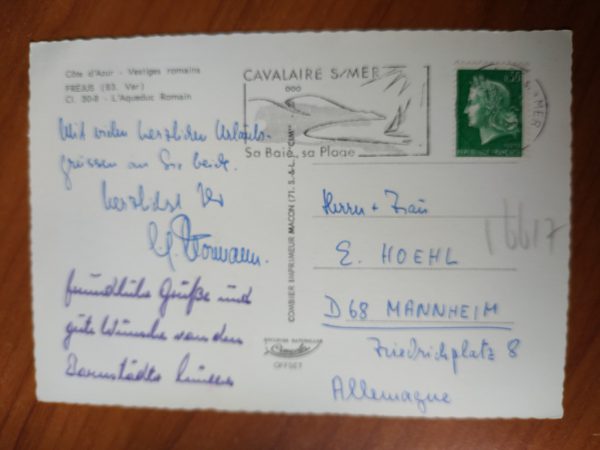 Côte d'Azur - Vestiges romains
FRÉJUS (83. Var)
Cl. 30-8 - L'Aqueduc Romain
CAVALAIRE S/MER
Sa Baie, sa Plage
0,30
RÉPUBLIQUE FRANÇAISE
MER
Mit vielen herzlichen Urlaubs-
grüssen an Sie beide.
herzlichst Ihr
freundliche Grüße und
gute Wünsche von den
Darmstädter
COMBIER IMPRIMEUR MACON (71. S.-&-L.) "CIM"
OFFSET
Herrn + Frau
E. HOEHL
D 68 MANNHEIM
Friedrichplatz 8
Allemagne